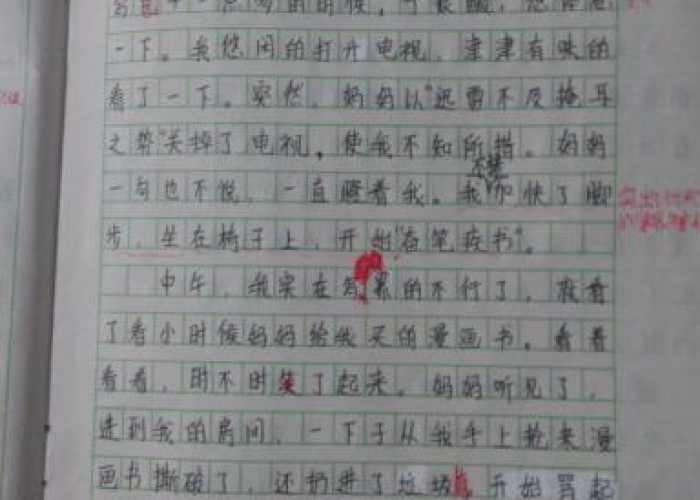 一下。我悠闲的打开电视，津津有味的
看了一下。突然，妈妈以"迅雷不及掩耳
之势"关掉了电视，使我不知所措。妈妈
一句也不说，一直瞪着我。我加快了脚
步，坐在椅子上，开始"奋笔疾书"。
中午，我实在写累的不行了，就看
了看小时候妈妈给我买的漫画书。看着
看着，时不时笑了起来。妈妈听见了，
进到我的房间，一下子从我手上抢来漫
画书撕破了，还扔进了垃圾 开始骂起